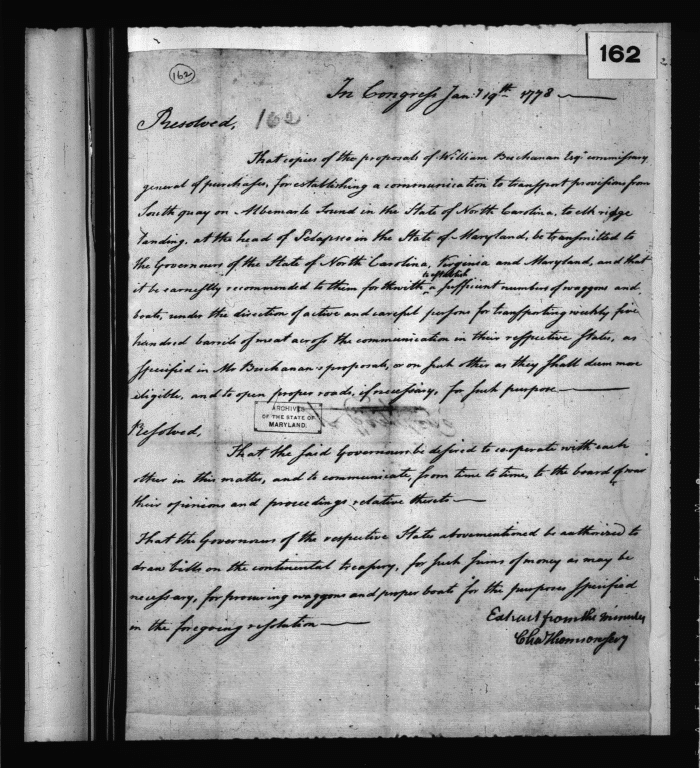 162
162
In Congress Jany 19th 1778
Resolved, 162
That copies of the proposals of William Buchanan Esqr commissary
general of purchases, for establishing a communication to transport provisions from
South quay on Albemarle Sound in the State of North Carolina, to elk ridge
landing, at the head of Patapsco in the State of Maryland, be transmitted to
the Governours of the State of North Carolina, Virginia and Maryland, and that
to establish
it be earnestly recommended to them forthwith a sufficient numbers of waggons and
boats, under the direction of active and careful persons for transporting weekly five
hundred barrels of meat across the communication in their respective States, as
specified in Mr Buchanan's proposals, or on such other as they shall deem more
eligible, and to open proper roads, if necessary, for such purpose
ARCHIVES
OF THE STATE OF
MARYLAND.
Resolved,
That the said Governours be desired to co operate with each
other in this matter, and to communicate, from time to time, to the board of war
their opinions and proceedings relative thereto
That the Governours of the respective States abovementioned be authorized to
draw bills on the continental treasury, for such sums of money as may be
necessary, for procuring waggons and proper boats for the purposes specified
in the foregoing resolution
Extract from the minutes
Cha Thomson secy